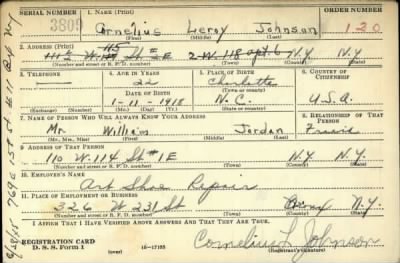 SERIAL NUMBER 1. NAME (Print) ORDER NUMBER
3809 Cornelius Leroy Johnson 120
(First) (Middle) (Last)
2. ADDRESS (Print) 115
W. St 2 E 2 W. 118 apt. 6 N.Y. N.Y.
(Number and street or R. F. D. number) (Town) (County) (State)
3. TELEPHONE 4. AGE IN YEARS 5. PLACE OF BIRTH 6. COUNTRY OF CITIZENSHIP
22 Charlotte
DATE OF BIRTH (Town or county)
1-11-1918 N.C. U.S.A.
(Exchange) (Number) (Mo.) (Day) (Yr.) (State or country)
7. NAME OF PERSON WHO WILL ALWAYS KNOW YOUR ADDRESS 8. RELATIONSHIP OF THAT PERSON
Mr. William Jordan Friend
(Mr., Mrs., Miss) (First) (Middle) (Last)
9. ADDRESS OF THAT PERSON
110 W. 114 St # 1E N.Y. N.Y.
(Number and street or R. F. D. number) (Town) (County) (State)
10. EMPLOYER'S NAME
Art Shoe Repair
11. PLACE OF EMPLOYMENT OR BUSINESS
326 W 231 St Bronx N.Y.
(Number and street or R. F. D. number) (Town) (County) (State)
I AFFIRM THAT I HAVE VERIFIED ABOVE ANSWERS AND THAT THEY ARE TRUE.
REGISTRATION CARD
D. S. S. Form 1 (over) 16-17105 Cornelius L. Johnson
(Registrant's signature)